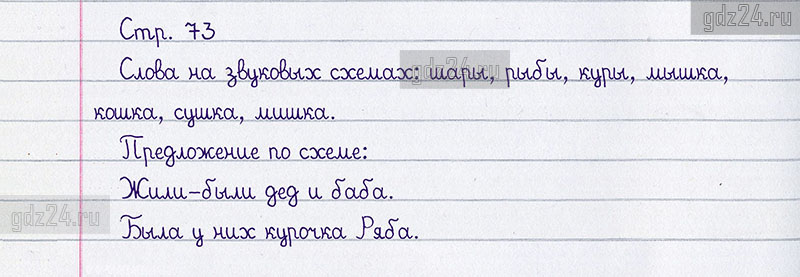 gdz24.ru
Стр. 73
Слова на звуковых схемах: шары, рыбы, куры, мышка,
gdz24.ru
кошка, сушка, мишка.
Предложение по схеме:
Жили-были дед и баба.
gdz24.ru
Была у них курочка Ряба.